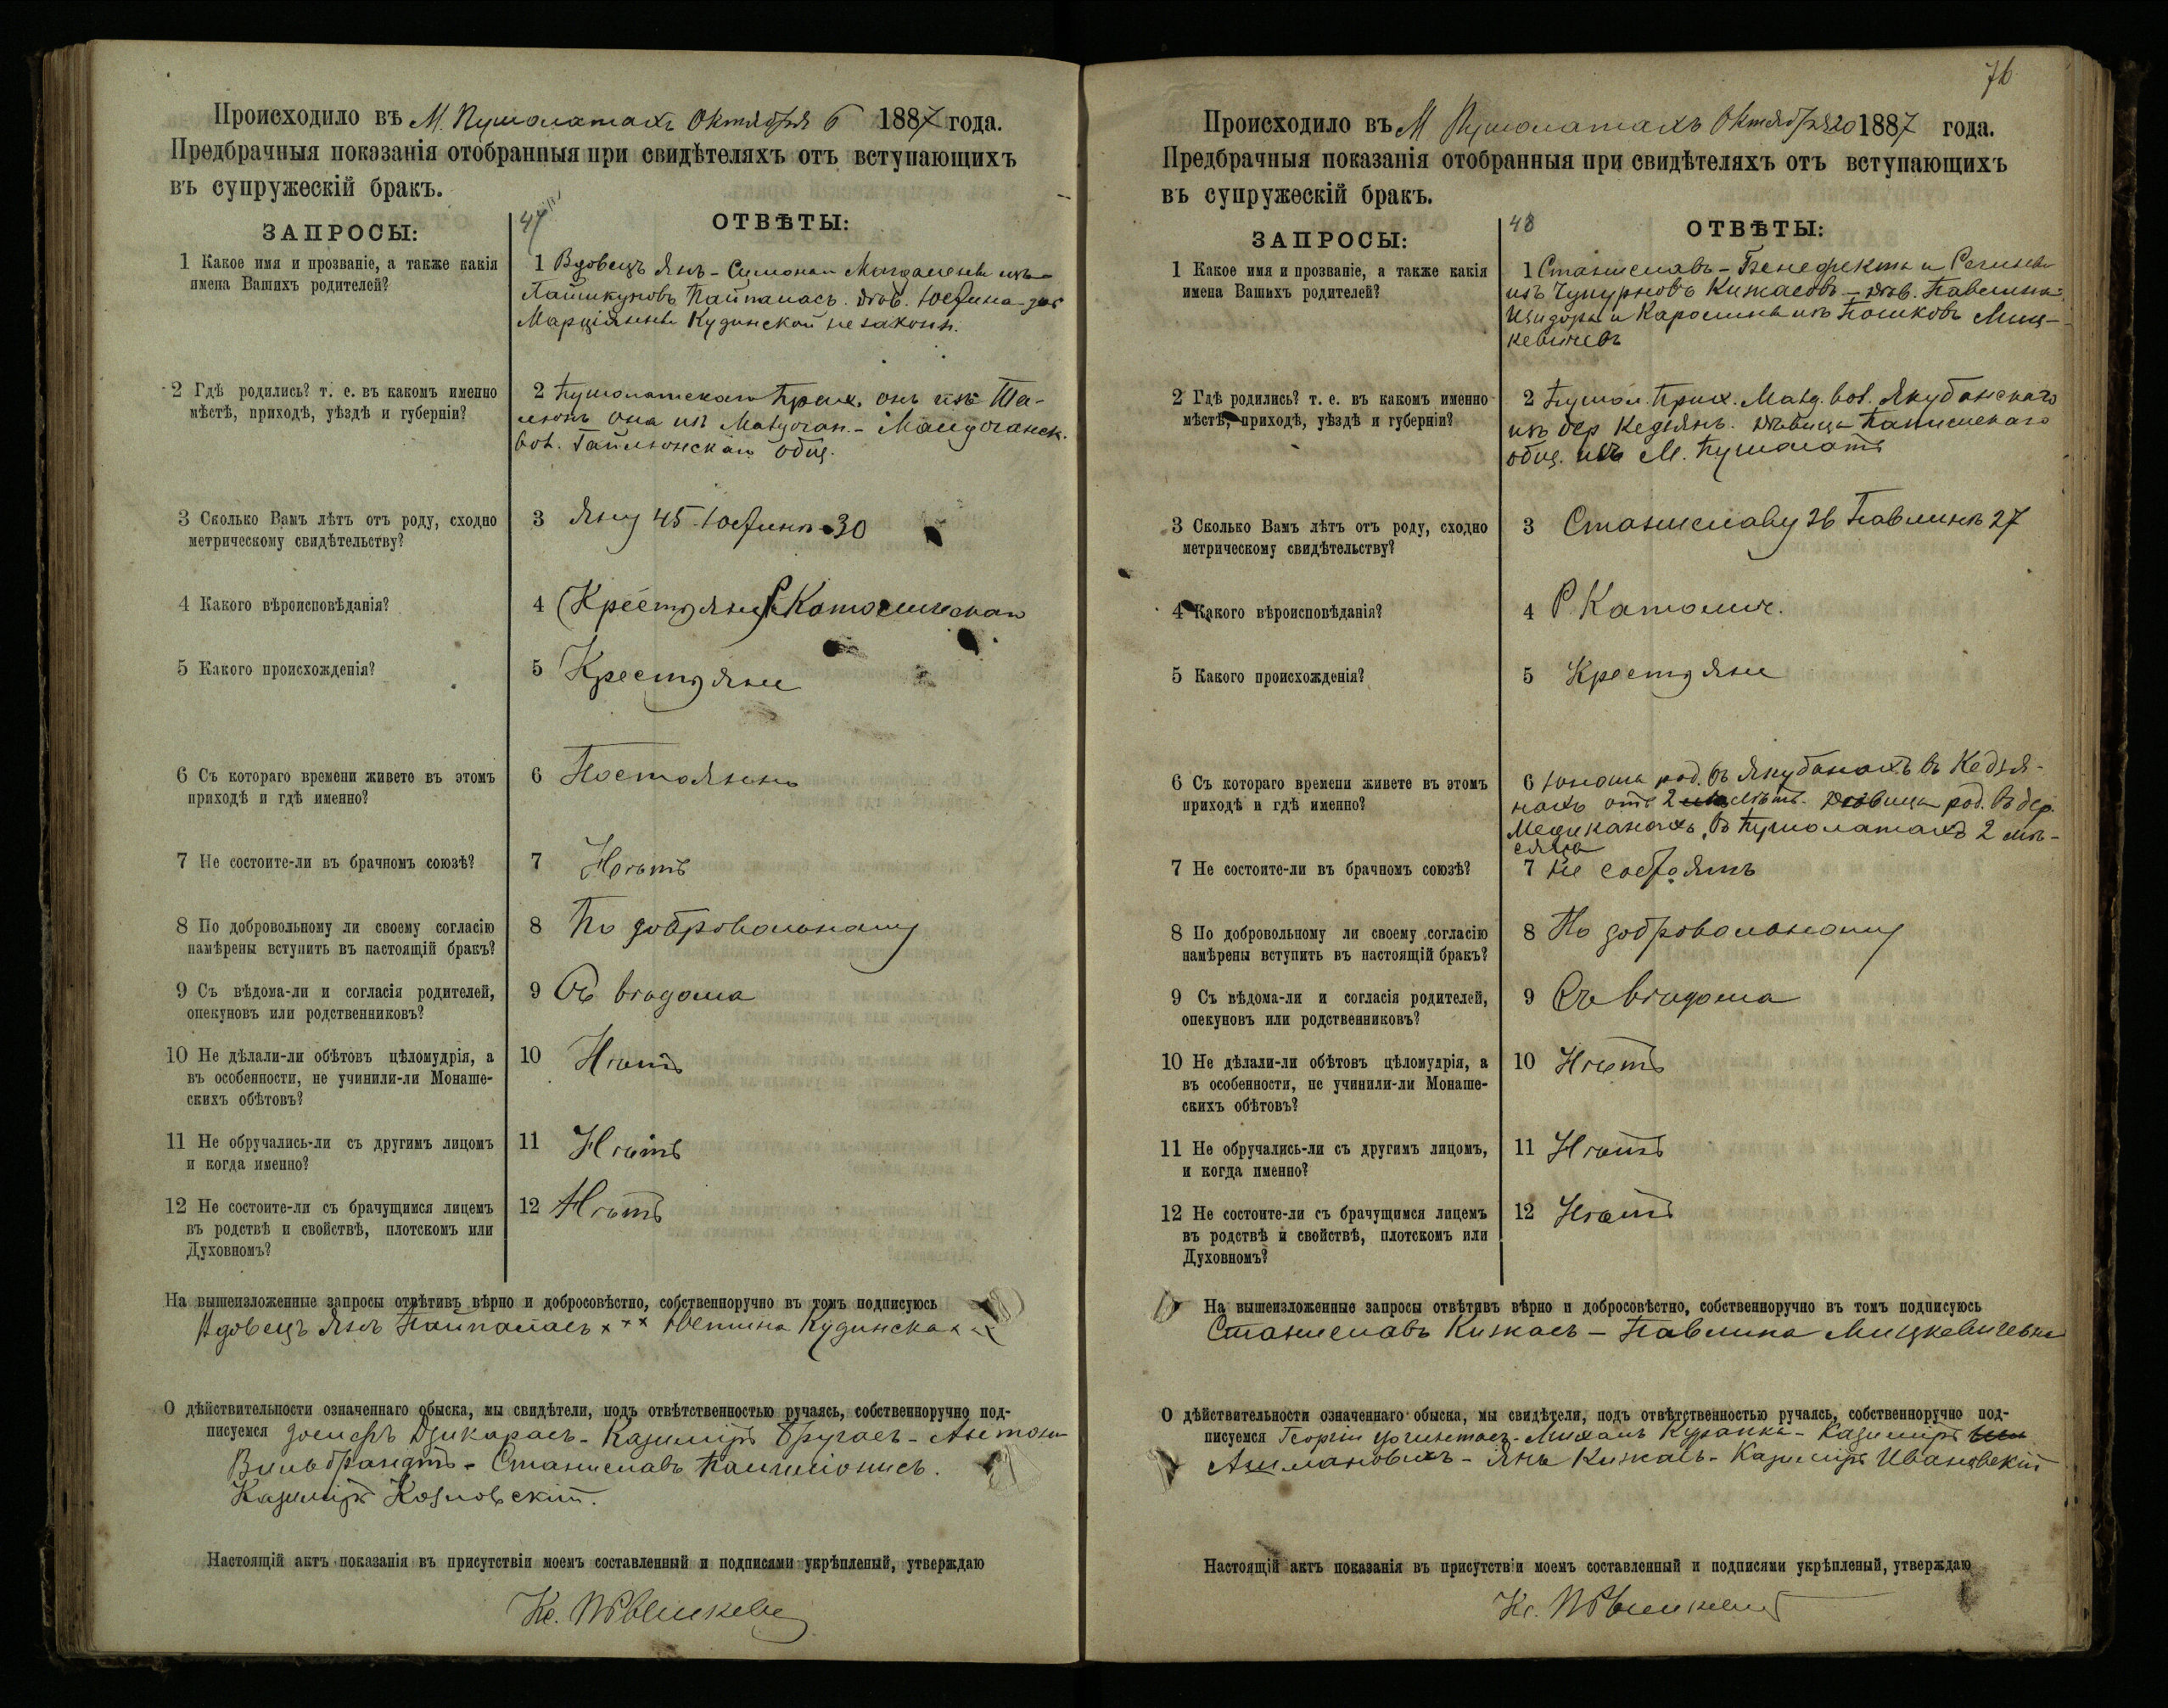 Происходило въ М. Пушолатахъ Октября 6 1887 года.
Предбрачныя показанія отобранныя при свидѣтеляхъ отъ вступающихъ
въ супружескій бракъ.
47
ЗАПРОСЫ:
ОТВѢТЫ:
1 Какое имя и прозваніе, а также какія
имена Вашихъ родителей?
1 Вдовецъ Янъ - Симона и Магдалены изъ
Пайпаласъ. дѣв. Юстина - дос
Марціанны Кудинской незакон.
2 Гдѣ родились? т. е. въ какомъ именно
мѣстѣ, приходѣ, уѣздѣ и губерніи?
2 Пушолатскаго Прих. онъ изъ
она изъ
вол. Гайлюнскаго общ.
3 Сколько Вамъ лѣтъ отъ роду, сходно
метрическому свидѣтельству?
3 Яну 45 Юстинѣ 30
4 Какого вѣроисповѣданія?
4 (Крестьяне) Р. Католическаго
5 Какого происхожденія?
5 Крестьяне
6 Съ котораго времени живете въ этомъ
приходѣ и гдѣ именно?
6 Постоянно
7 Не состоите-ли въ брачномъ союзѣ?
7 Нѣтъ
8 По добровольному ли своему согласію
намѣрены вступить въ настоящій бракъ?
8 По добровольному
9 Съ вѣдома-ли и согласія родителей,
опекуновъ или родственниковъ?
9 Съ вѣдома
10 Не дѣлали-ли обѣтовъ цѣломудрія, а
въ особенности, не учинили-ли Монаше-
скихъ обѣтовъ?
10 Нѣтъ
11 Не обручались-ли съ другимъ лицомъ
и когда именно?
11 Нѣтъ
12 Не состоите-ли съ брачущимся лицемъ
въ родствѣ и свойствѣ, плотскомъ или
Духовномъ?
12 Нѣтъ
На вышеизложенные запросы отвѣтивъ вѣрно и добросовѣстно, собственноручно въ томъ подписуюсь
Вдовецъ Янъ Пайпаласъ x x x Юстина Кудинска x x
О дѣйствительности означеннаго обыска, мы свидѣтели, подъ отвѣтственностью ручаясь, собственноручно под-
писуемся Іосифъ Дзикарасъ - Казиміръ Бругасъ - Антонъ
Вильбрандтъ - Станиславъ
Казиміръ Козловскій.
Настоящій актъ показанія въ присутствіи моемъ составленный и подписями укрѣпленый, утверждаю
Кс.
76
Происходило въ М Пушолатахъ Октября 20 1887 года.
Предбрачныя показанія отобранныя при свидѣтеляхъ отъ вступающихъ
въ супружескій бракъ.
48
ЗАПРОСЫ:
ОТВѢТЫ:
1 Какое имя и прозваніе, а также какія
имена Вашихъ родителей?
1 Станиславъ - Бенедикта и Регины
изъ Чупурновъ Кижасовъ - дѣв. Павлина
Изидора и Каролины изъ Пошковъ Миц-
кевичевъ
2 Гдѣ родились? т. е. въ какомъ именно
мѣстѣ, приходѣ, уѣздѣ и губерніи?
2 Пушол. Прих. вол. Якубанскаго
изъ дер Кедзянъ. дѣвица
общ. изъ М. Пушолатъ
3 Сколько Вамъ лѣтъ отъ роду, сходно
метрическому свидѣтельству?
3 Станиславу 26 Павлинѣ 27
4 Какого вѣроисповѣданія?
4 Р. Католич.
5 Какого происхожденія?
5 Крестьяне
6 Съ котораго времени живете въ этомъ
приходѣ и гдѣ именно?
6 Юноша род. въ Якубанахъ въ Кедзя-
нахъ отъ 2 лѣтъ. Дѣвица род. въ дер.
въ Пушолатахъ 2 мѣ-
сяца
7 Не состоите-ли въ брачномъ союзѣ?
7 Не состоятъ
8 По добровольному ли своему согласію
намѣрены вступить въ настоящій бракъ?
8 По добровольному
9 Съ вѣдома-ли и согласія родителей,
опекуновъ или родственниковъ?
9 Съ вѣдома
10 Не дѣлали-ли обѣтовъ цѣломудрія, а
въ особенности, не учинили-ли Монаше-
скихъ обѣтовъ?
10 Нѣтъ
11 Не обручались-ли съ другимъ лицомъ,
и когда именно?
11 Нѣтъ
12 Не состоите-ли съ брачущимся лицемъ
въ родствѣ и свойствѣ, плотскомъ или
Духовномъ?
12 Нѣтъ
На вышеизложенные запросы отвѣтивъ вѣрно и добросовѣстно, собственноручно въ томъ подписуюсь
Станиславъ Кижасъ - Павлина Мицкевичевна
О дѣйствительности означеннаго обыска, мы свидѣтели, подъ отвѣтственностью ручаясь, собственноручно под-
писуемся Георгій - Михаилъ - Казиміръ
- Янъ Кижасъ - Казиміръ Ивановскій
Настоящій актъ показанія въ присутствіи моемъ составленный и подписями укрѣпленый, утверждаю
Кс.